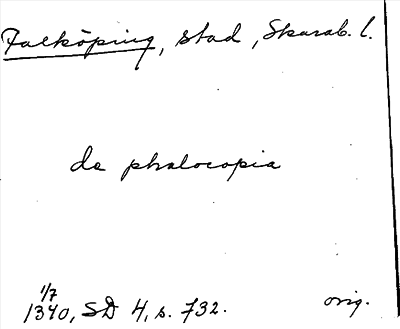 Falköping, stad, Skarab. l.
de phalocopia
1/7
1340, SD 4, s. 732. orig.